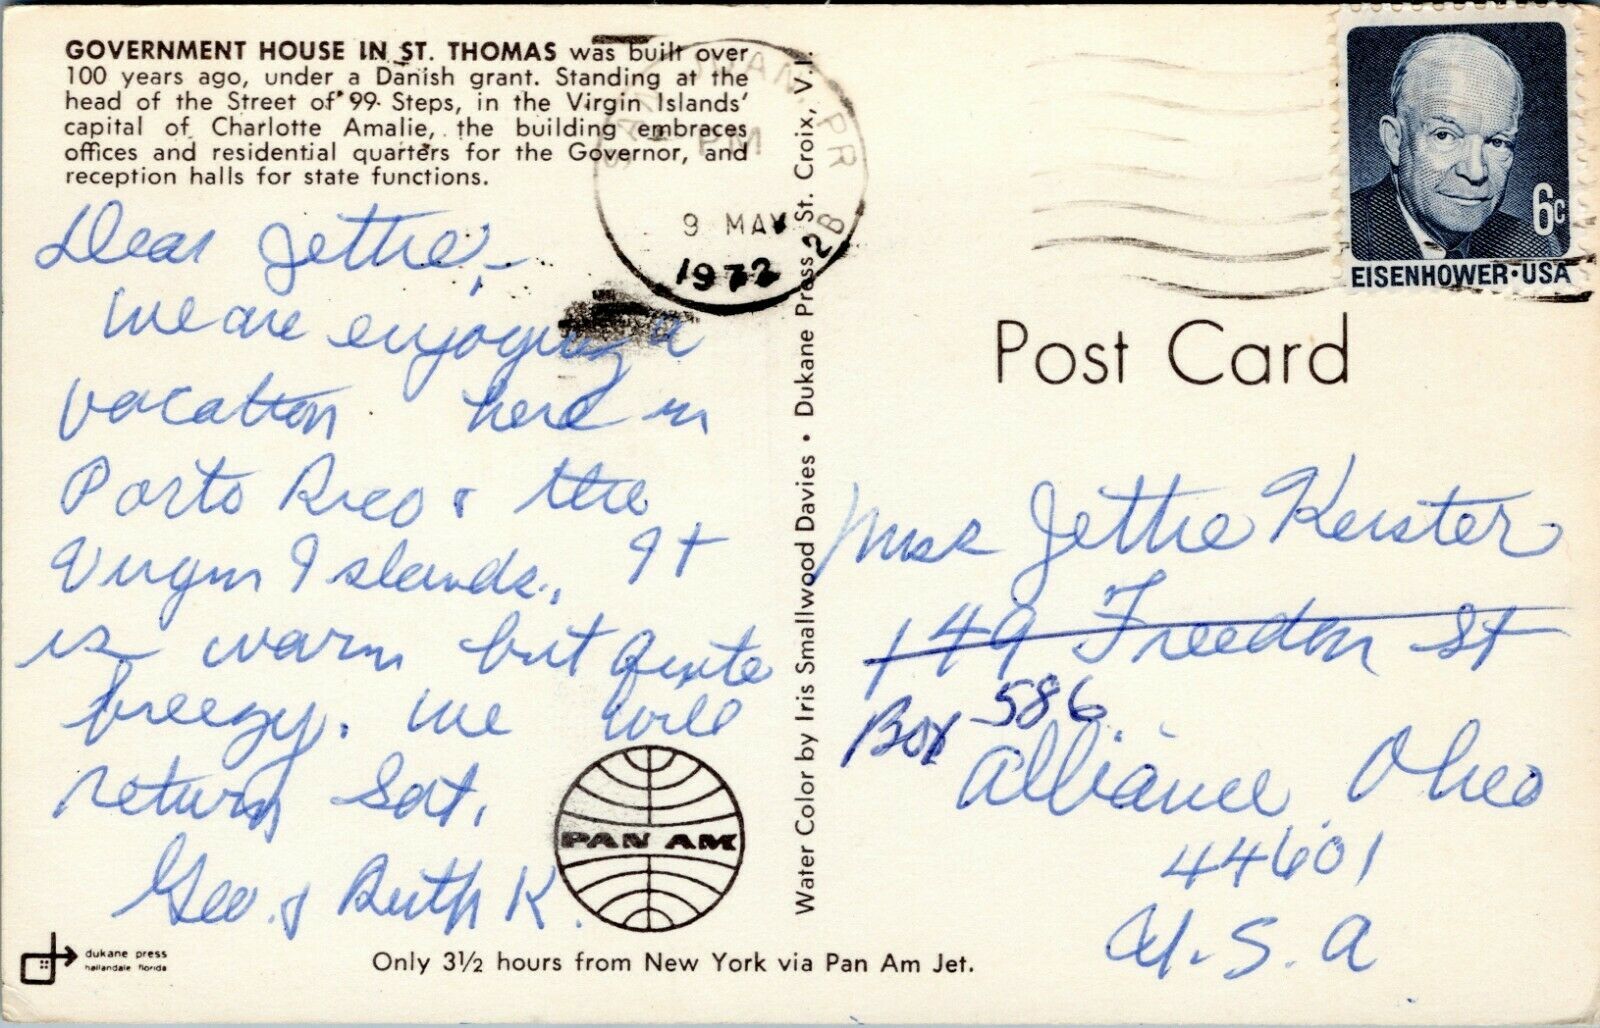 GOVERNMENT HOUSE IN ST. THOMAS was built over
100 years ago, under a Danish grant. Standing at the
head of the Street of 99 Steps, in the Virgin Islands'
capital of Charlotte Amalie, the building embraces
offices and residential quarters for the Governor, and
reception halls for state functions.
Dear Jettie,-
We are enjoying a
vacation here in
Porto Rico & the
Virgin Islands. It
is warm but quite
breezy. We will
return Sat.
Geo. & Ruth K.
dukane press
hallandale florida
PAN AM
Only 3½ hours from New York via Pan Am Jet.
Water Color by Iris Smallwood Davies • Dukane Press St. Croix, V.I.
PR
PM
2B
9 MAY
1972
6c
EISENHOWER·USA
Post Card
Miss Jettie Keister
149 Freedom St
Box 586
Alliance, Ohio
44601
U.S.A